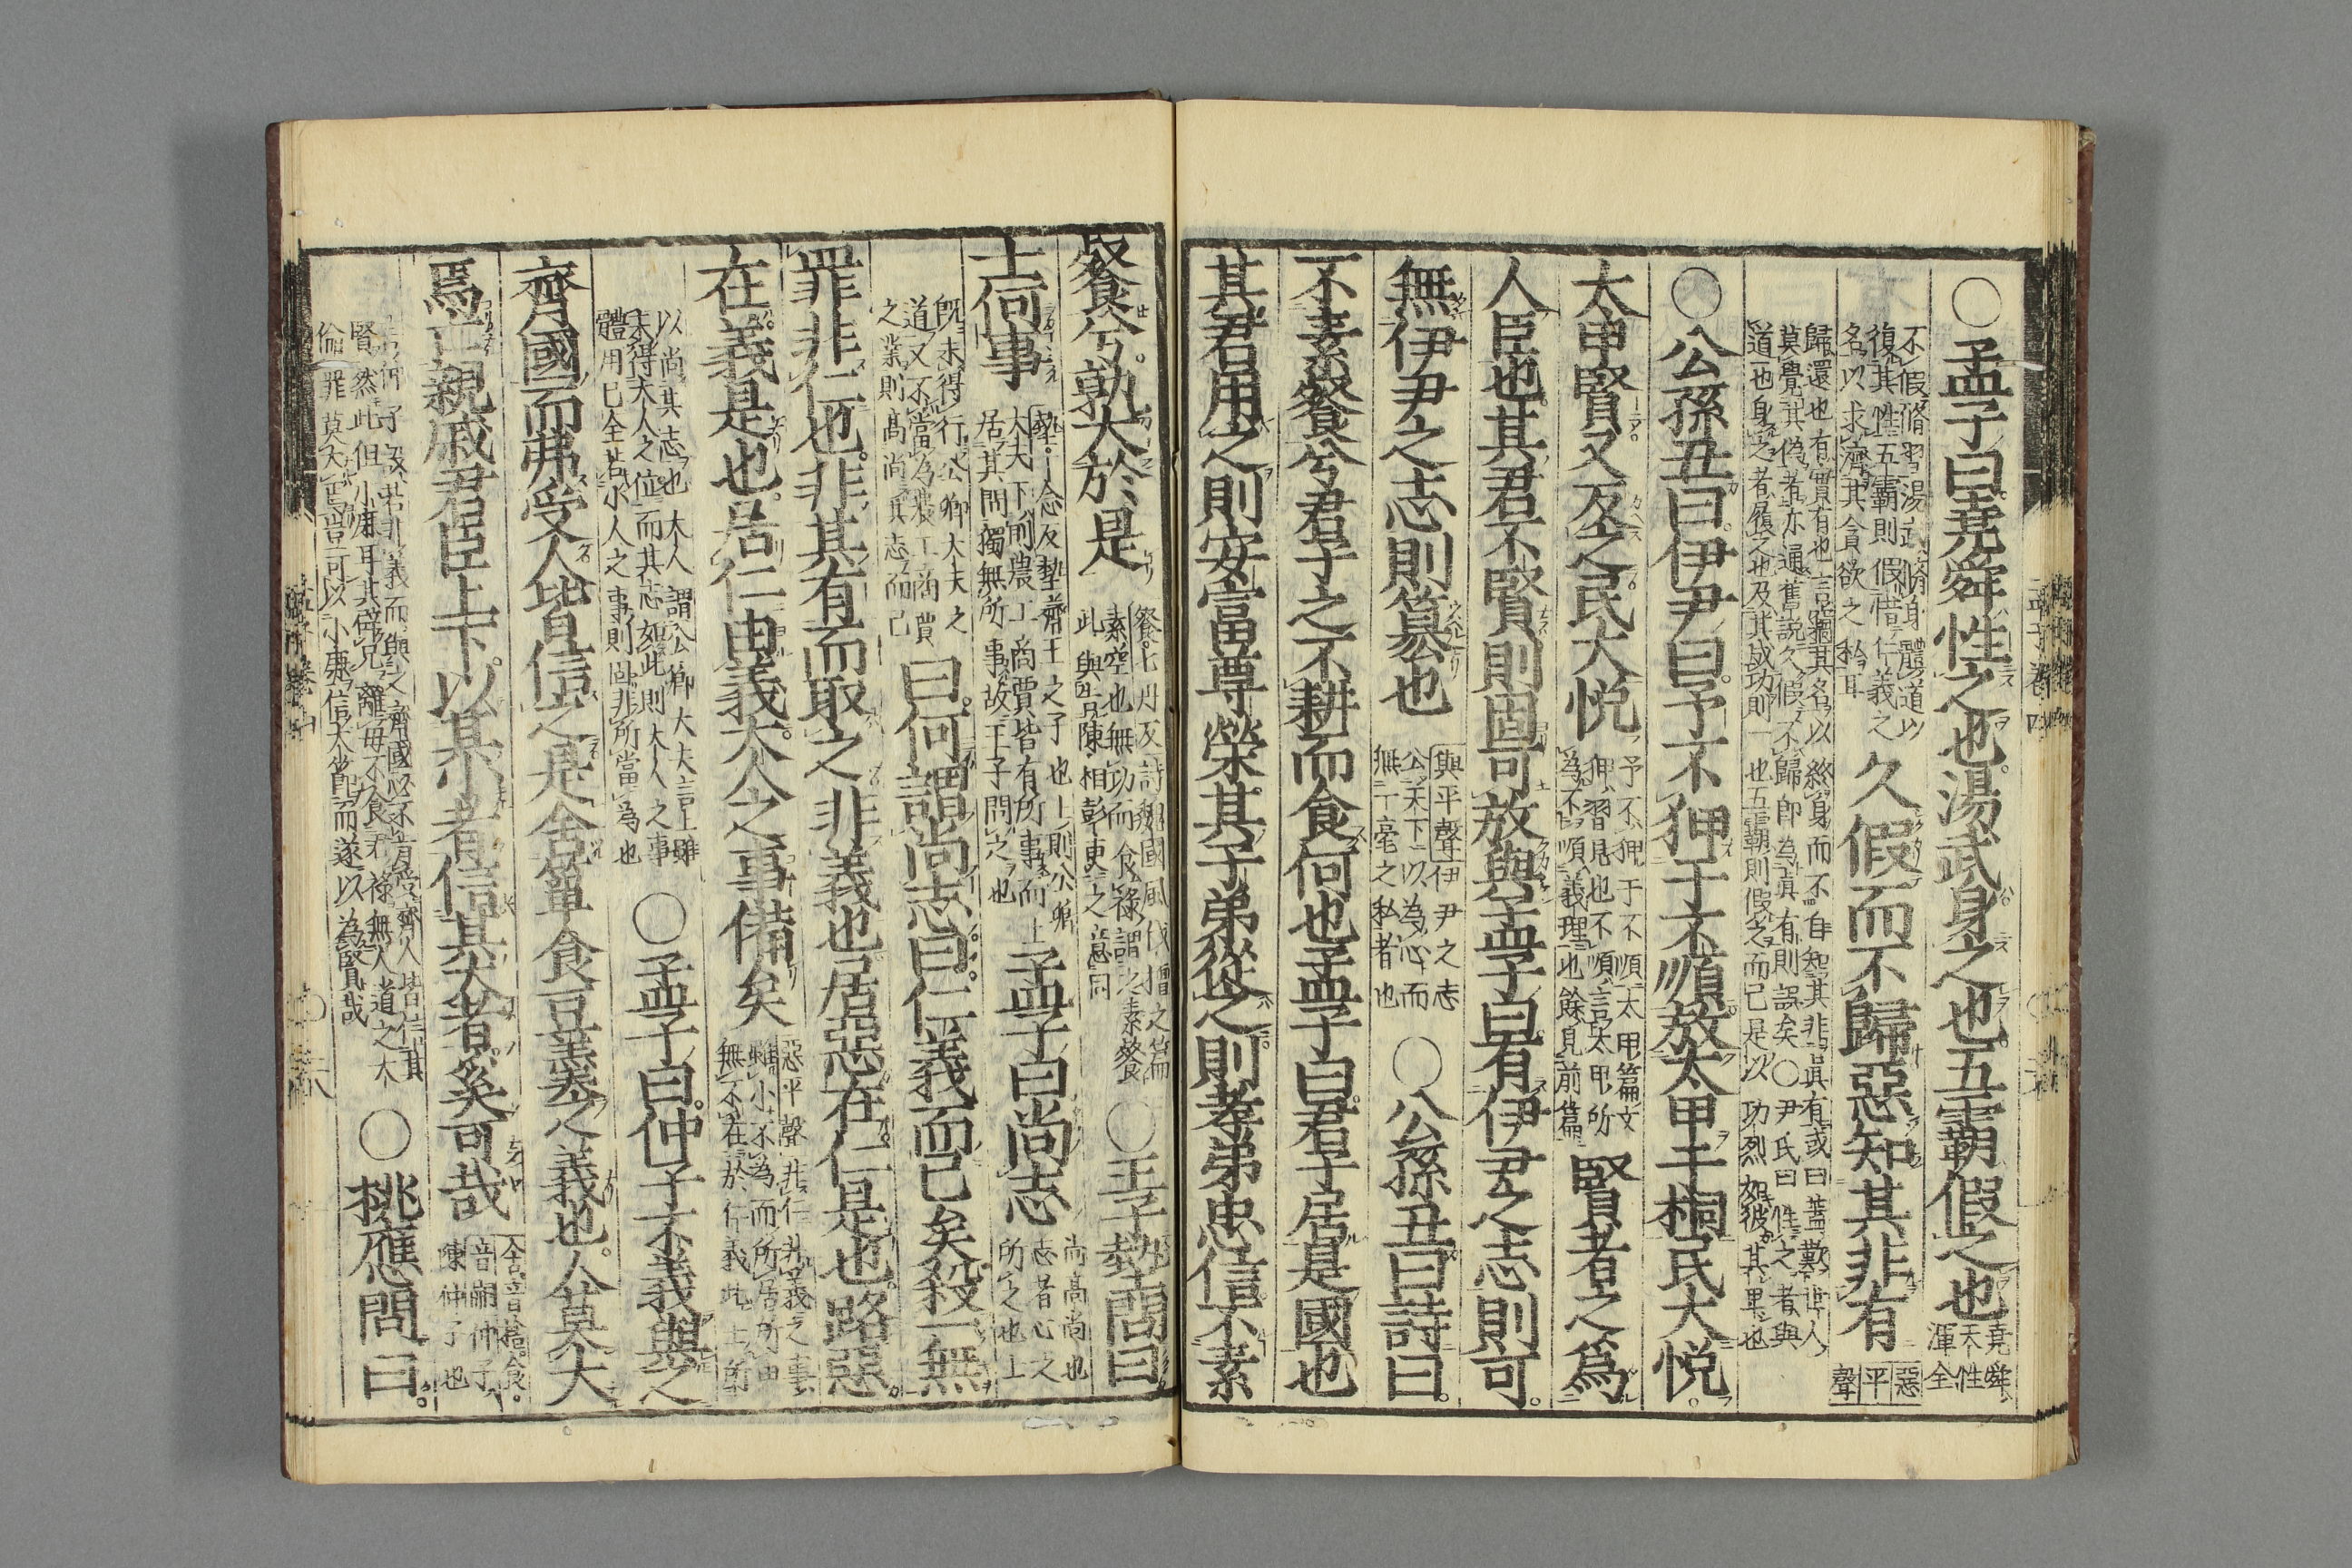 ○孟子曰堯舜性之也湯武身之也五霸假之也
堯舜
天性
渾全
不假脩習湯武脩身體道以
復其性五霸則假借仁義之
名以求濟其貪欲之私耳
久假而不歸惡知其非有
惡
平
聲
歸還也有實有也言竊其名以終身而不自知其非眞有或曰蓋歎世人
莫覺其偽者亦通舊説久假不歸即為眞有則誤矣○尹氏曰性之者與
道也身之者履之也及其成功則一也五霸則假之而已是以功烈如彼其卑也
○公孫丑曰伊尹曰予不狎于不順放太甲于桐民大悦
太甲賢又反之民大悦
予不狎于不順太甲篇文
狎習見也不順言太甲所
為不順義理也餘見前篇
賢者之爲
人臣也其君不賢則固可放與孟子曰有伊尹之志則可
無伊尹之志則簒也
與平聲伊尹之志
公天下以為心而
無一毫之私者也
○公孫丑曰詩曰
不素餐兮君子之不耕而食何也孟子曰君子居是國也
其君用之則安富尊榮其子弟從之則孝弟忠信不素
餐兮孰大於是
餐七丹反詩魏國風伐檀之篇
素空也無功而食祿謂之素餐
此與告陳相彭更之意同
○王子墊問曰
士何事
墊丁念反墊齊王之子也上則公卿
大夫下則農工商賈皆有所事而士
居其間獨無所事故王子問之也
孟子曰尚志
尚高尚也
志者心之
所之也士
既未得行公卿大夫之
道又不當為農工商賈
之業則高尚其志而已
曰何謂尚志曰仁義而已矣殺一無
罪非仁也非其有而取之非義也居惡在仁是也路惡
在義是也居仁由義大人之事備矣
惡平聲非仁非義之事
雖小不為而所居所由
無不在於仁義此士所
以尚其志也大人謂公卿大夫言士雖
未得大人之位而其志如此則大人之事
體用已全若小人之事則固非所當為也
○孟子曰仲子不義與之
齊國而弗受人皆信之是舍簞食豆羹之義也人莫大
焉亡親戚君臣上下以其小者信其大者奚可哉
舍音捨食
音嗣仲子
陳仲子也
言仲子設若非義而與之齊國必不肯受齊人皆信其
賢然此但小廉耳其辟兄離母不食君祿無人道之大
倫罪莫大焉豈可以小廉信大節而遂以為賢哉
○桃應問曰